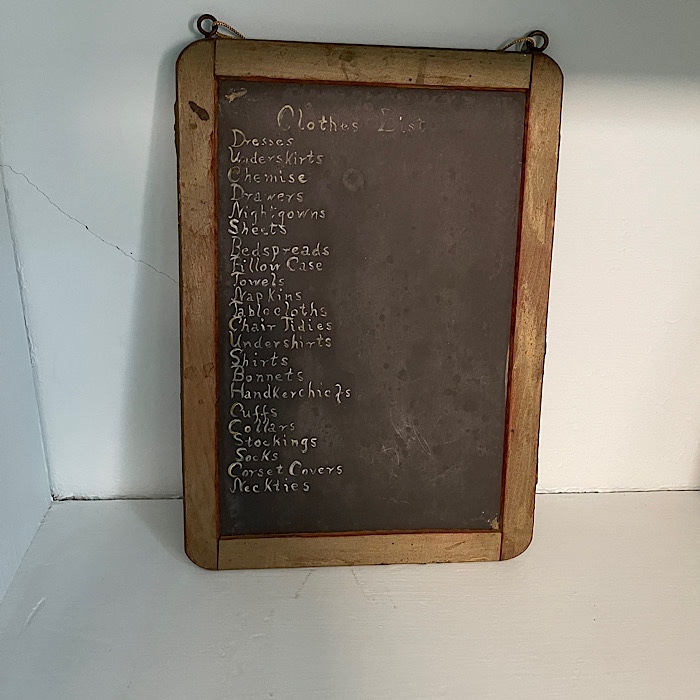 Clothes List
Dresses
Underskirts
Chemise
Drawers
Nightgowns
Sheets
Bedspreads
Pillow Case
Towels
Napkins
Tablecloths
Chair Tidies
Undershirts
Shirts
Bonnets
Handkerchiefs
Cuffs
Collars
Stockings
Socks
Corset Covers
Neckties